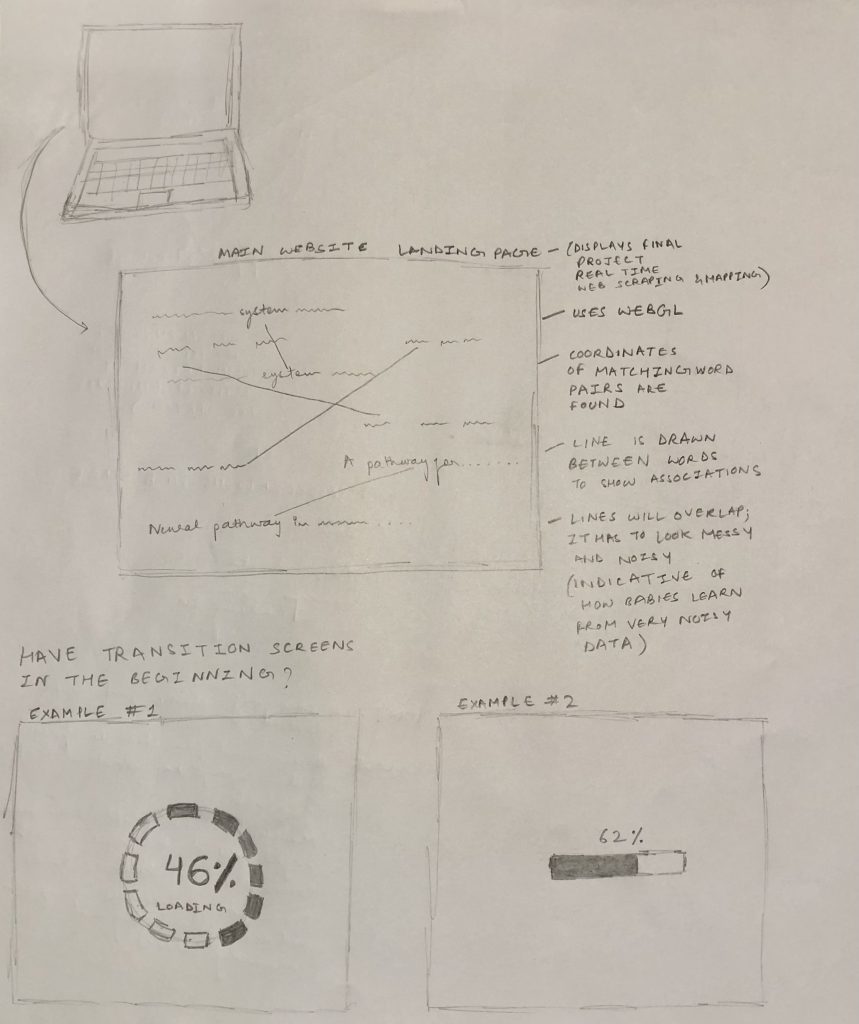 MAIN WEBSITE LANDING PAGE – (DISPLAYS FINAL
PROJECT
REAL TIME
WEB SCRAPING & MAPPING)
system
– USES WEBGL
system
– COORDINATES
OF MATCHING WORD
PAIRS ARE
FOUND
A pathway for.......
– LINE IS DRAWN
BETWEEN WORDS
TO SHOW ASSOCIATIONS
Neural pathway in ....
– LINES WILL OVERLAP;
IT HAS TO LOOK MESSY
AND NOISY
(INDICATIVE OF
HOW BABIES LEARN
FROM VERY NOISY
DATA)
HAVE TRANSITION SCREENS
IN THE BEGINNING?
EXAMPLE #1
46%
LOADING
EXAMPLE #2
62%